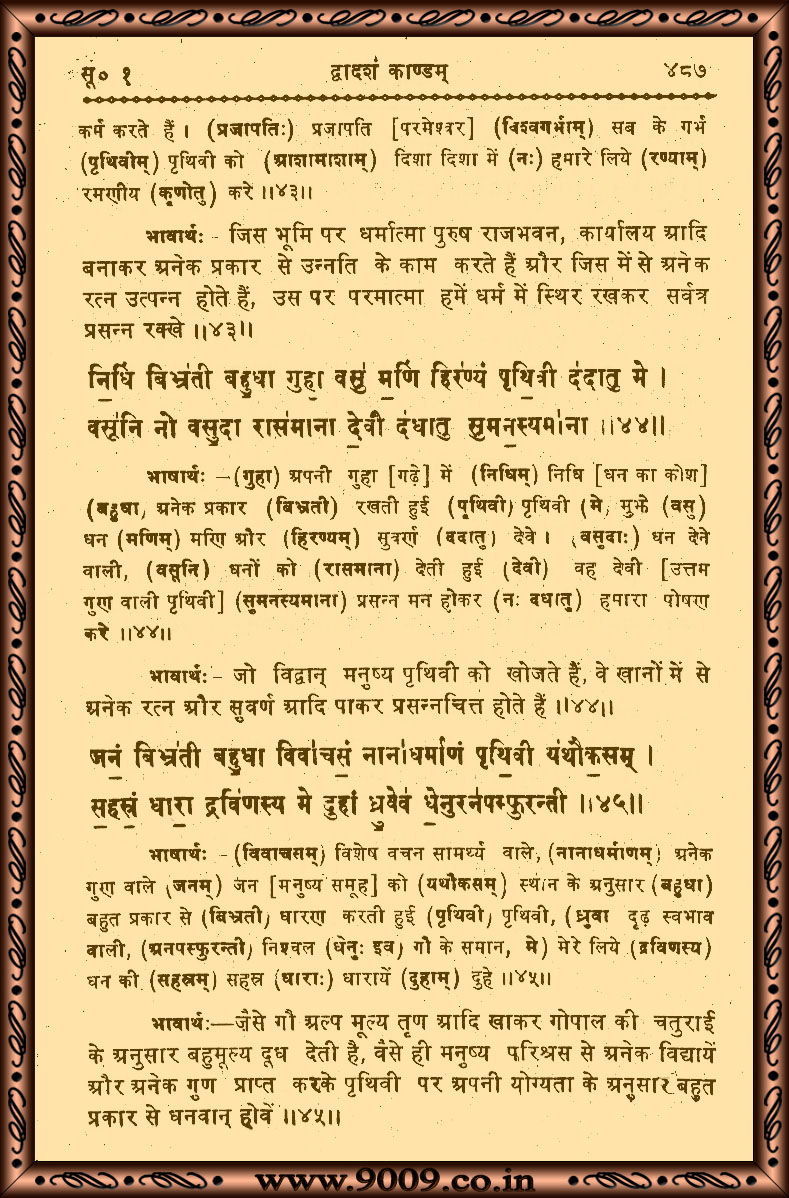 सू० १ द्वादशं काण्डम् ४८७
कर्म करते हैं । (प्रजापतिः) प्रजापति [परमेश्वर] (विश्वगर्भाम्) सब के गर्भ
(पृथिवीम्) पृथिवी को (आशामाशाम्) दिशा दिशा में (नः) हमारे लिये (रण्याम्)
रमणीय (कृणोतु) करे ॥४३॥
भावार्थः - जिस भूमि पर धर्मात्मा पुरुष राजभवन, कार्यालय आदि
बनाकर अनेक प्रकार से उन्नति के काम करते हैं और जिस में से अनेक
रत्न उत्पन्न होते हैं, उस पर परमात्मा हमें धर्म में स्थिर रखकर सर्वत्र
प्रसन्न रक्खे ॥४३॥
नि॒धिं बिभ्र॑ती बहु॒धा गुहा॒ वसु॑ म॒णिं हिर॑ण्यं पृथि॒वी द॑दातु मे ।
वसू॑नि नो वसु॒दा रास॑माना दे॒वी द॑धातु सुम॒नस्यमा॑ना ॥४४॥
भाषार्थः —(गुहा) अपनी गुहा [गढ़े] में (निधिम्) निधि [धन का कोश]
(बहुधा) अनेक प्रकार (बिभ्रती) रखती हुई (पृथिवी) पृथिवी (मे) मुझे (वसु)
धन (मणिम्) मणि और (हिरण्यम्) सुवर्ण (ददातु) देवे । (वसुदाः) धन देने
वाली, (वसूनि) धनों को (रासमाना) देती हुई (देवी) वह देवी [उत्तम
गुण वाली पृथिवी] (सुमनस्यमाना) प्रसन्न मन होकर (नः दधातु) हमारा पोषण
करे ॥४४॥
भावार्थः - जो विद्वान् मनुष्य पृथिवी को खोजते हैं, वे खानों में से
अनेक रत्न और सुवर्ण आदि पाकर प्रसन्नचित्त होते हैं ॥४४॥
जनं॒ बिभ्र॑ती बहु॒धा विवा॑चसं॒ नाना॑धर्माणं पृथि॒वी य॑थौक॒सम् ।
स॒हस्रं॒ धारा॒ द्रवि॑णस्य मे दुहां ध्रु॒वेव॑ धे॒नुरन॑पस्फुरन्ती ॥४५॥
भाषार्थः - (विवाचसम्) विशेष वचन सामर्थ्य वाले, (नानाधर्माणम्) अनेक
गुण वाले (जनम्) जन [मनुष्य समूह] को (यथौकसम्) स्थान के अनुसार (बहुधा)
बहुत प्रकार से (बिभ्रती) धारण करती हुई (पृथिवी) पृथिवी, (ध्रुवा दृढ़ स्वभाव
वाली, (अनपस्फुरन्ती) निश्चल (धेनुः इव) गौ के समान, मे) मेरे लिये (द्रविणस्य)
धन की (सहस्रम्) सहस्र (धाराः) धारायें (दुहाम्) दुहे ॥४५॥
भावार्थः—जैसे गौ अल्प मूल्य तृण आदि खाकर गोपाल की चतुराई
के अनुसार बहुमूल्य दूध देती है, वैसे ही मनुष्य परिश्रस से अनेक विद्यायें
और अनेक गुण प्राप्त करके पृथिवी पर अपनी योग्यता के अनुसार बहुत
प्रकार से धनवान् होवें ॥४५॥
www.9009.co.in